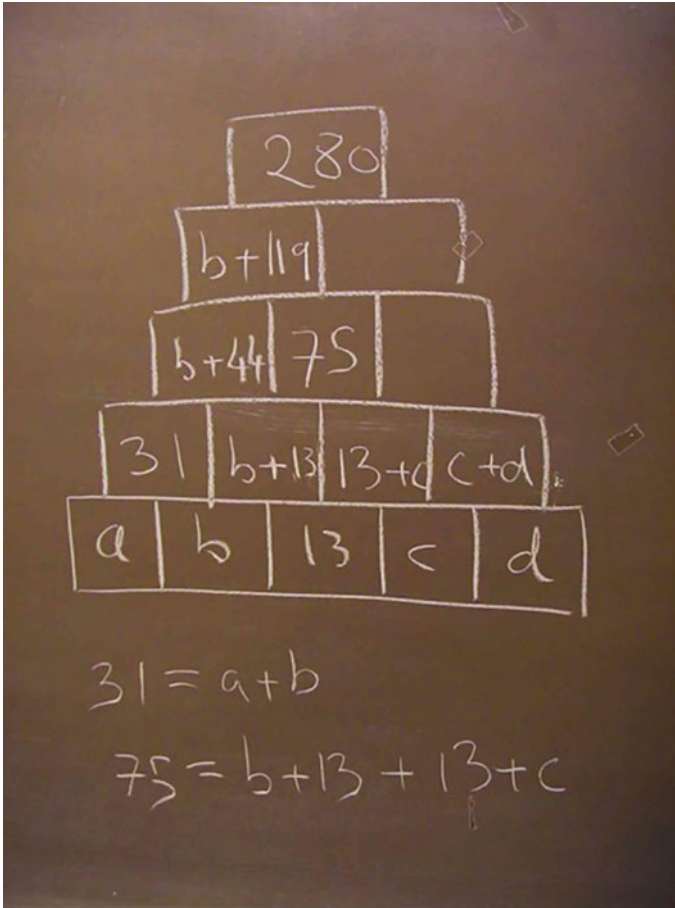 280
b+119
b+44 75
31 b+13 13+c c+d
a b 13 c d
31=a+b
75=b+13+13+c